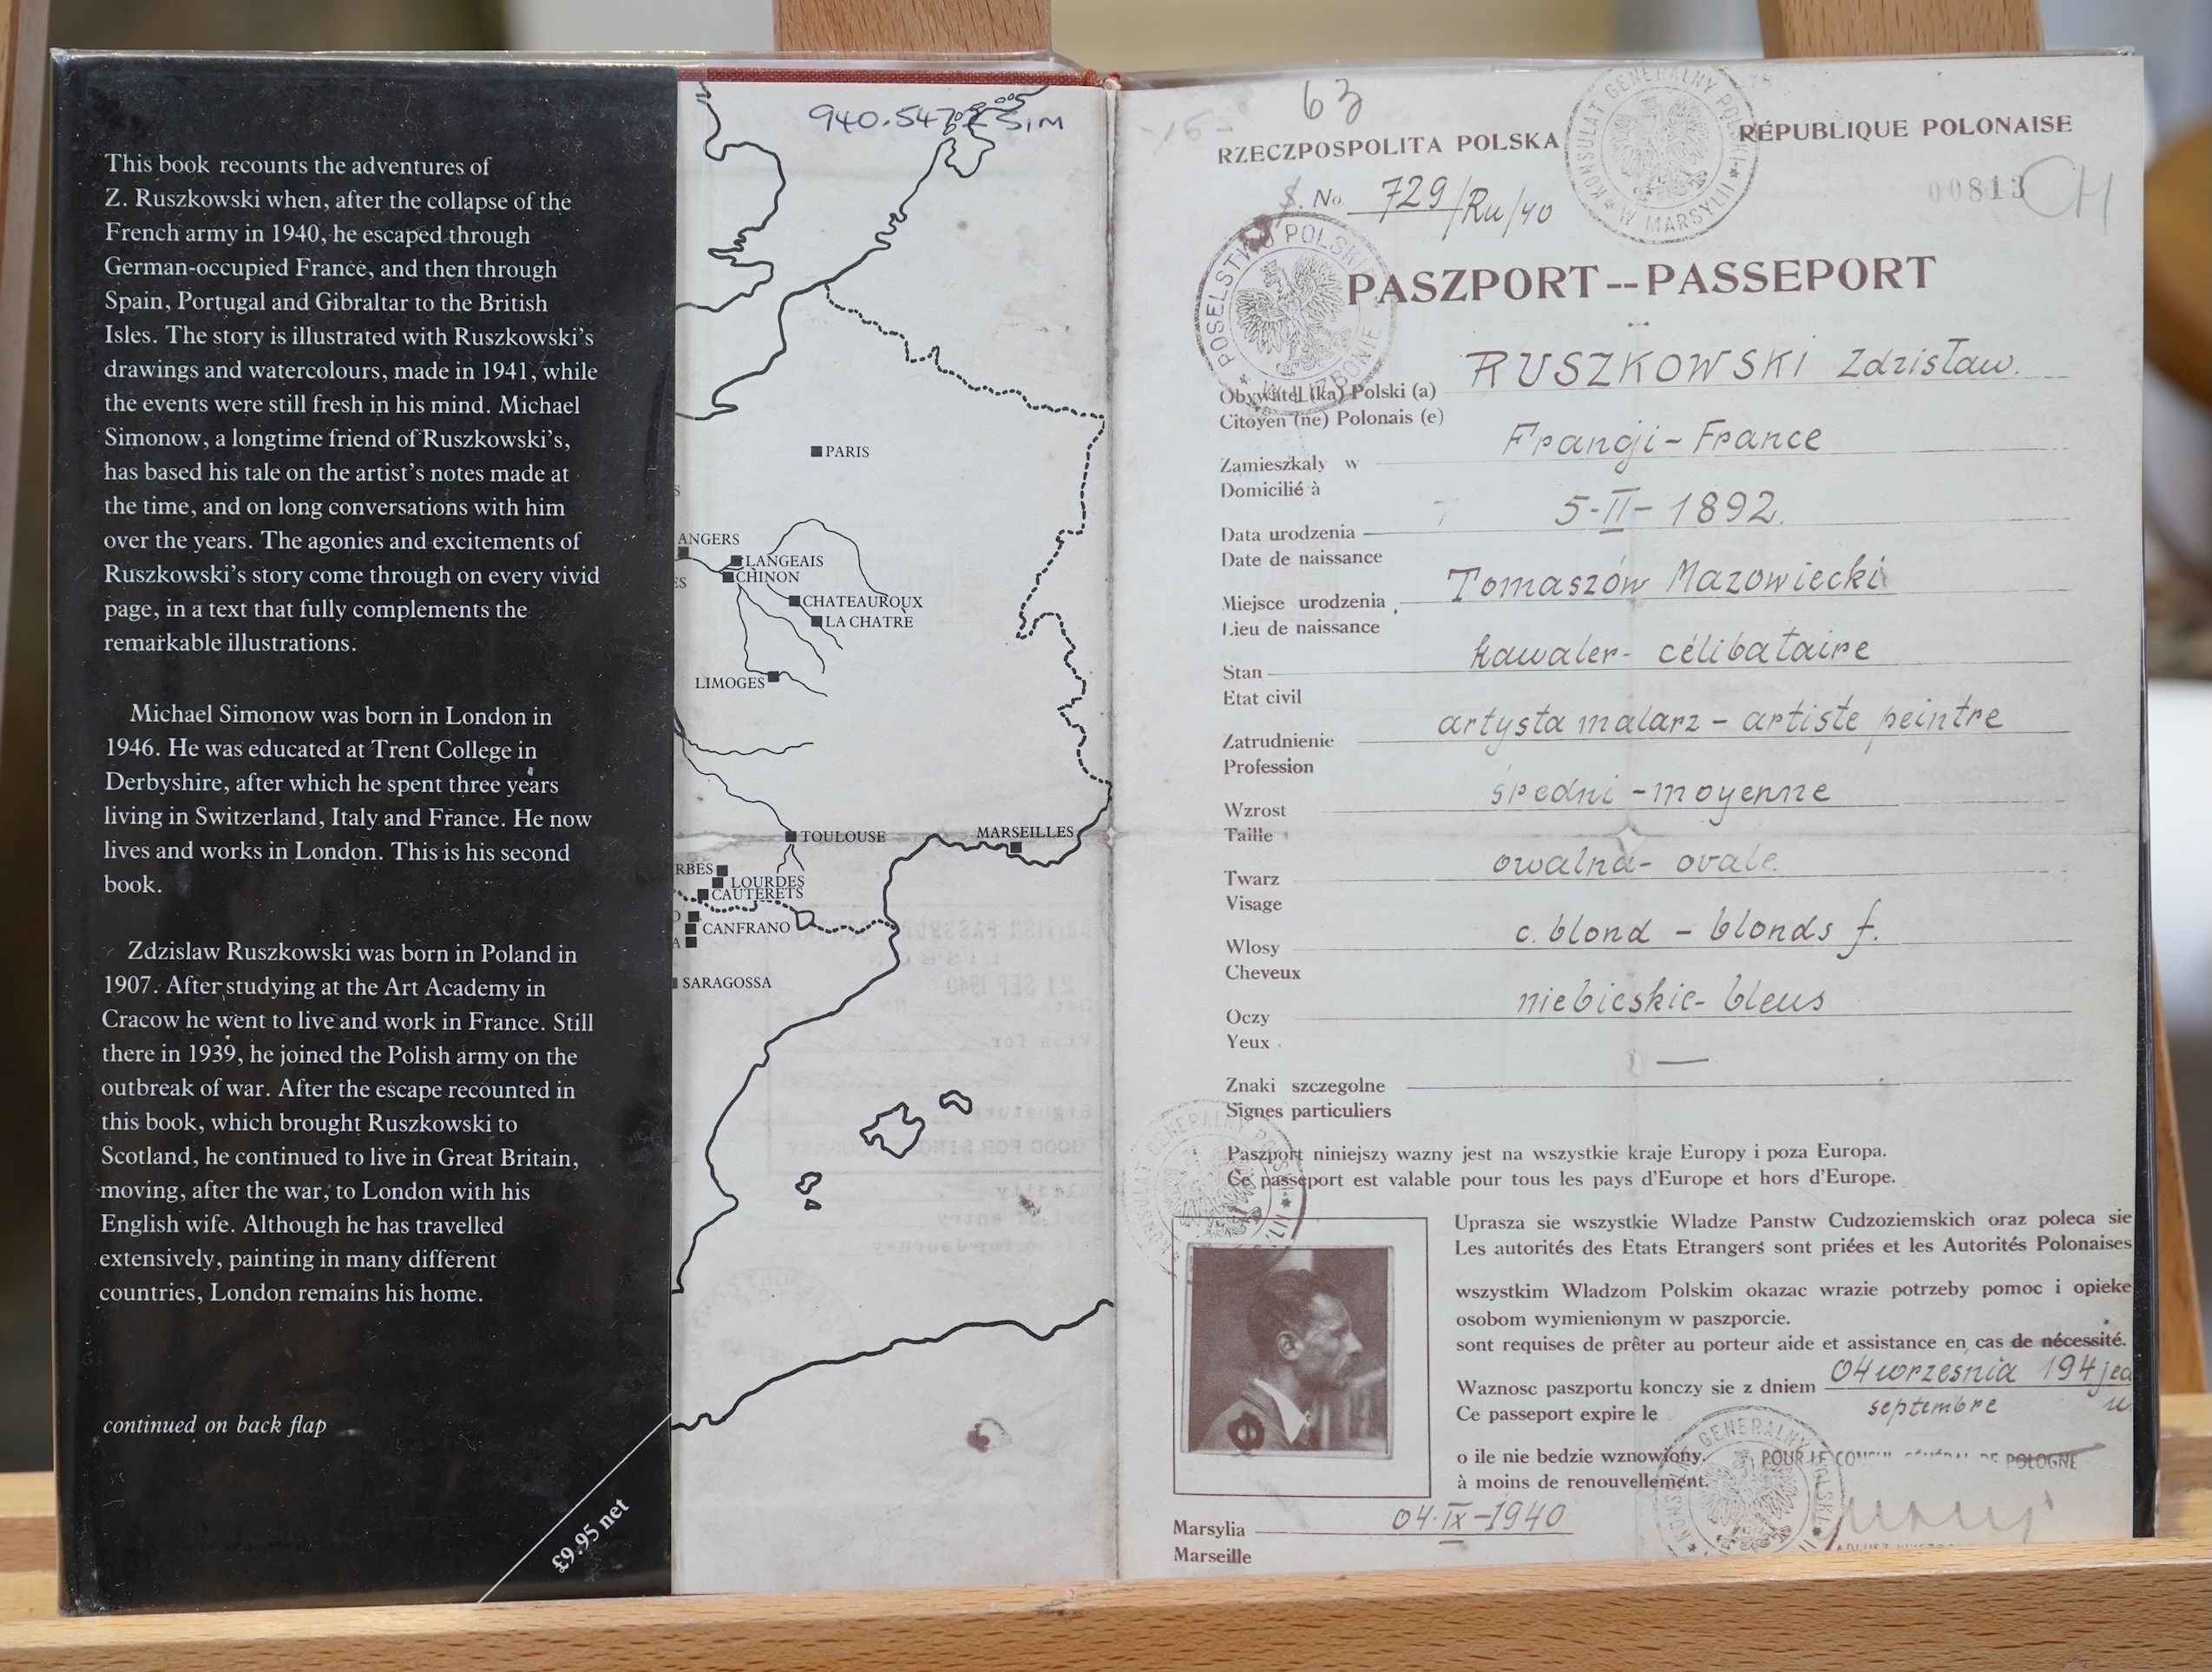 This book recounts the adventures of
Z. Ruszkowski when, after the collapse of the
French army in 1940, he escaped through
German-occupied France, and then through
Spain, Portugal and Gibraltar to the British
Isles. The story is illustrated with Ruszkowski's
drawings and watercolours, made in 1941, while
the events were still fresh in his mind. Michael
Simonow, a longtime friend of Ruszkowski's,
has based his tale on the artist's notes made at
the time, and on long conversations with him
over the years. The agonies and excitements of
Ruszkowski's story come through on every vivid
page, in a text that fully complements the
remarkable illustrations.
Michael Simonow was born in London in
1946. He was educated at Trent College in
Derbyshire, after which he spent three years
living in Switzerland, Italy and France. He now
lives and works in London. This is his second
book.
Zdzislaw Ruszkowski was born in Poland in
1907. After studying at the Art Academy in
Cracow he went to live and work in France. Still
there in 1939, he joined the Polish army on the
outbreak of war. After the escape recounted in
this book, which brought Ruszkowski to
Scotland, he continued to live in Great Britain,
moving, after the war, to London with his
English wife. Although he has travelled
extensively, painting in many different
countries, London remains his home.
continued on back flap
£9.95 net
SIM
PARIS
ANGERS
LANGEAIS
CHINON
CHATEAUROUX
LA CHATRE
LIMOGES
TOULOUSE
MARSEILLES
RBES
LOURDES
CAUTERETS
CANFRANO
SARAGOSSA
21 SEP 1940
GOOD FOR SINGLE JOURNEY
63
RZECZPOSPOLITA POLSKA
RÉPUBLIQUE POLONAISE
KONSULAT GENERALNY POLSKI W MARSYLII
No. 729/Ru/40
00813
CH
POSELSTWO POLSKIE W LIZBONIE
PASZPORT -- PASSEPORT
RUSZKOWSKI Zdzisław.
Obywatel (ka) Polski (a)
Citoyen (ne) Polonais (e)
Francji - France
Zamieszkaly w
Domicilié à
5-II-1892.
Data urodzenia
Date de naissance
Tomaszów Mazowiecki
Miejsce urodzenia
Lieu de naissance
kawaler - célibataire
Stan
Etat civil
artysta malarz - artiste peintre
Zatrudnienie
Profession
średni - moyenne
Wzrost
Taille
owalna - ovale
Twarz
Visage
c. blond - blonds f.
Wlosy
Cheveux
niebieskie - bleus
Oczy
Yeux
Znaki szczegolne
Signes particuliers
Paszport niniejszy wazny jest na wszystkie kraje Europy i poza Europa.
Ce passeport est valable pour tous les pays d'Europe et hors d'Europe.
Uprasza sie wszystkie Wladze Panstw Cudzoziemskich oraz poleca sie
Les autorités des Etats Etrangers sont priées et les Autorités Polonaises
wszystkim Wladzom Polskim okazac wrazie potrzeby pomoc i opieke
osobom wymienionym w paszporcie.
sont requises de prêter au porteur aide et assistance en cas de nécessité.
Waznosc paszportu konczy sie z dniem 04 wrzesnia 194
Ce passeport expire le septembre
o ile nie bedzie wznowiony.
à moins de renouvellement.
POUR LE CONSUL GÉNÉRAL DE POLOGNE
Marsylia 04·IX-1940
Marseille